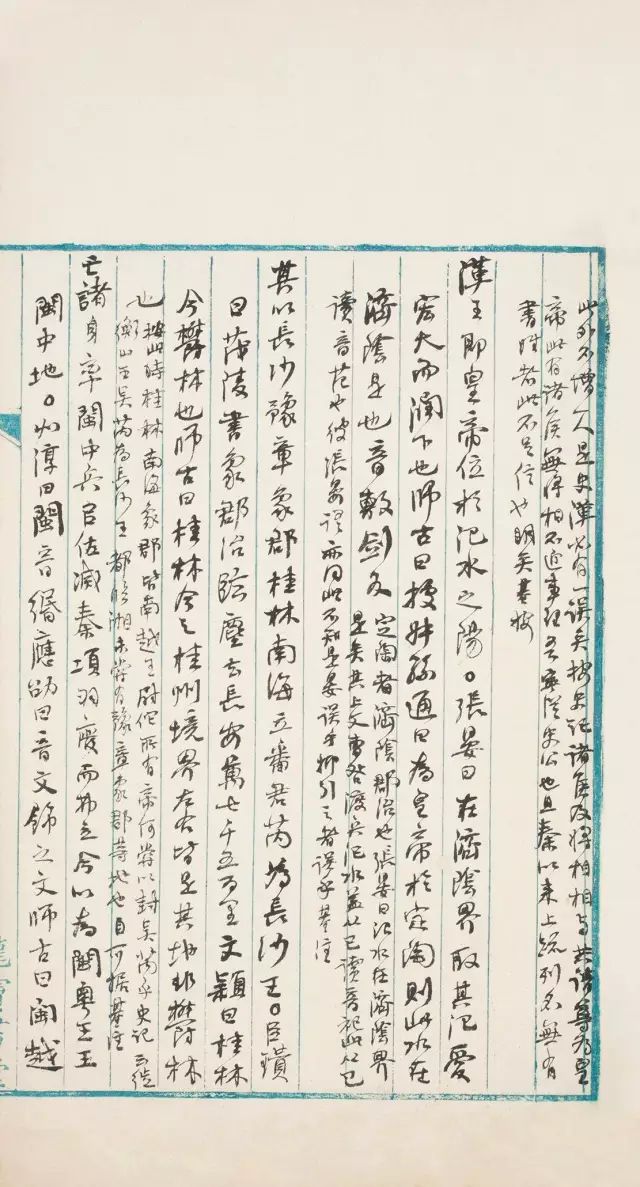 此外不增一人是史漢必有一誤矣按史記諸侯及將相相与共請尊為皇
帝此有諸侯無將相不近事理吾寧從史公也且秦以来上疏列名無有
書附者此不足信也明矣基按
漢王即皇帝位於汜水之陽。張晏曰在濟陰界取其汜愛
宏大而潤下也師古曰據叔孫通曰為皇帝於定陶則此水在
濟陰是也音敷劍反 定陶者濟陰郡治也張晏曰汜水在濟陰界
是矣其上文曹咎渡兵汜水并从巳讀音祀此从巳
讀音范也彼張晏謬亦同此不知是晏誤乎抑引之者誤乎基注
其以長沙豫章象郡桂林南海立番君芮為長沙王。臣瓚
曰茂陵書象郡治臨塵去長安萬七千五百里文穎曰桂林
今欝林也師古曰桂林今之桂州境界左右皆是其地非欝林
也 按此時桂林南海象郡皆南越王尉佗所有帝何嘗以封吴芮乎史記云徙
衡山王吴芮為長沙王都臨湘未嘗有豫章象郡等地也自可據基注
亡諸身率閩中兵以佐滅秦項羽廢而弗立今以為閩粵王王
閩中地。如淳曰閩音緡應劭曰音文飾之文師古曰閩越